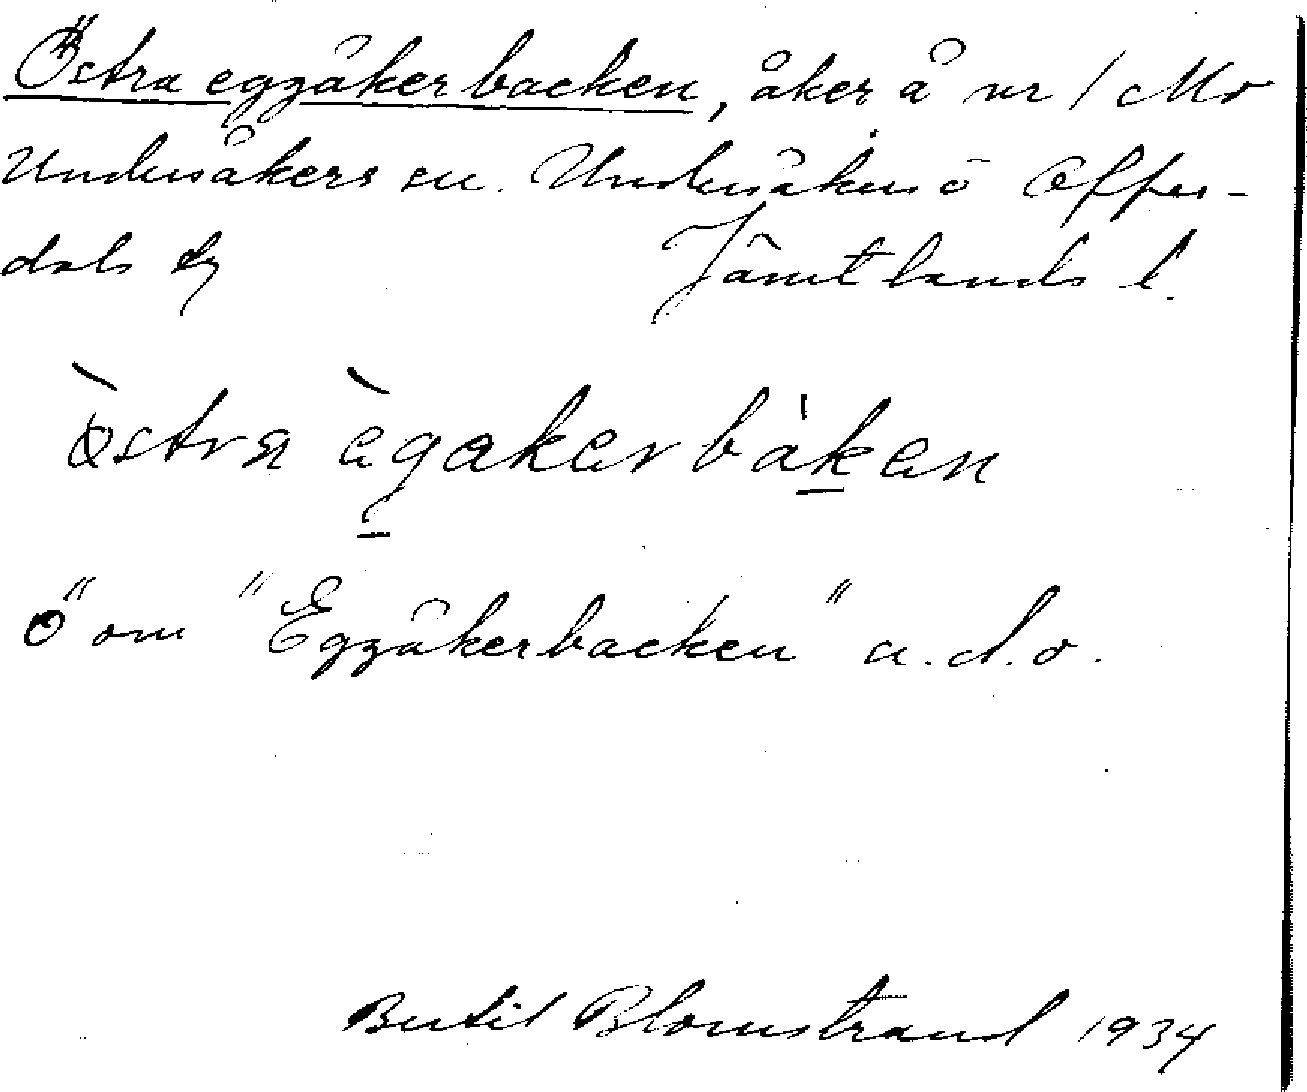 Östra eggåkerbacken, åker å nr 1 Mo
Undersåkers sn. Undersåkers o Offer-
dals tg Jämtlands l.
östra ègakerbàken
ö om "Eggåkerbacken" a.d.o.
Bertil Blomstrand 1934